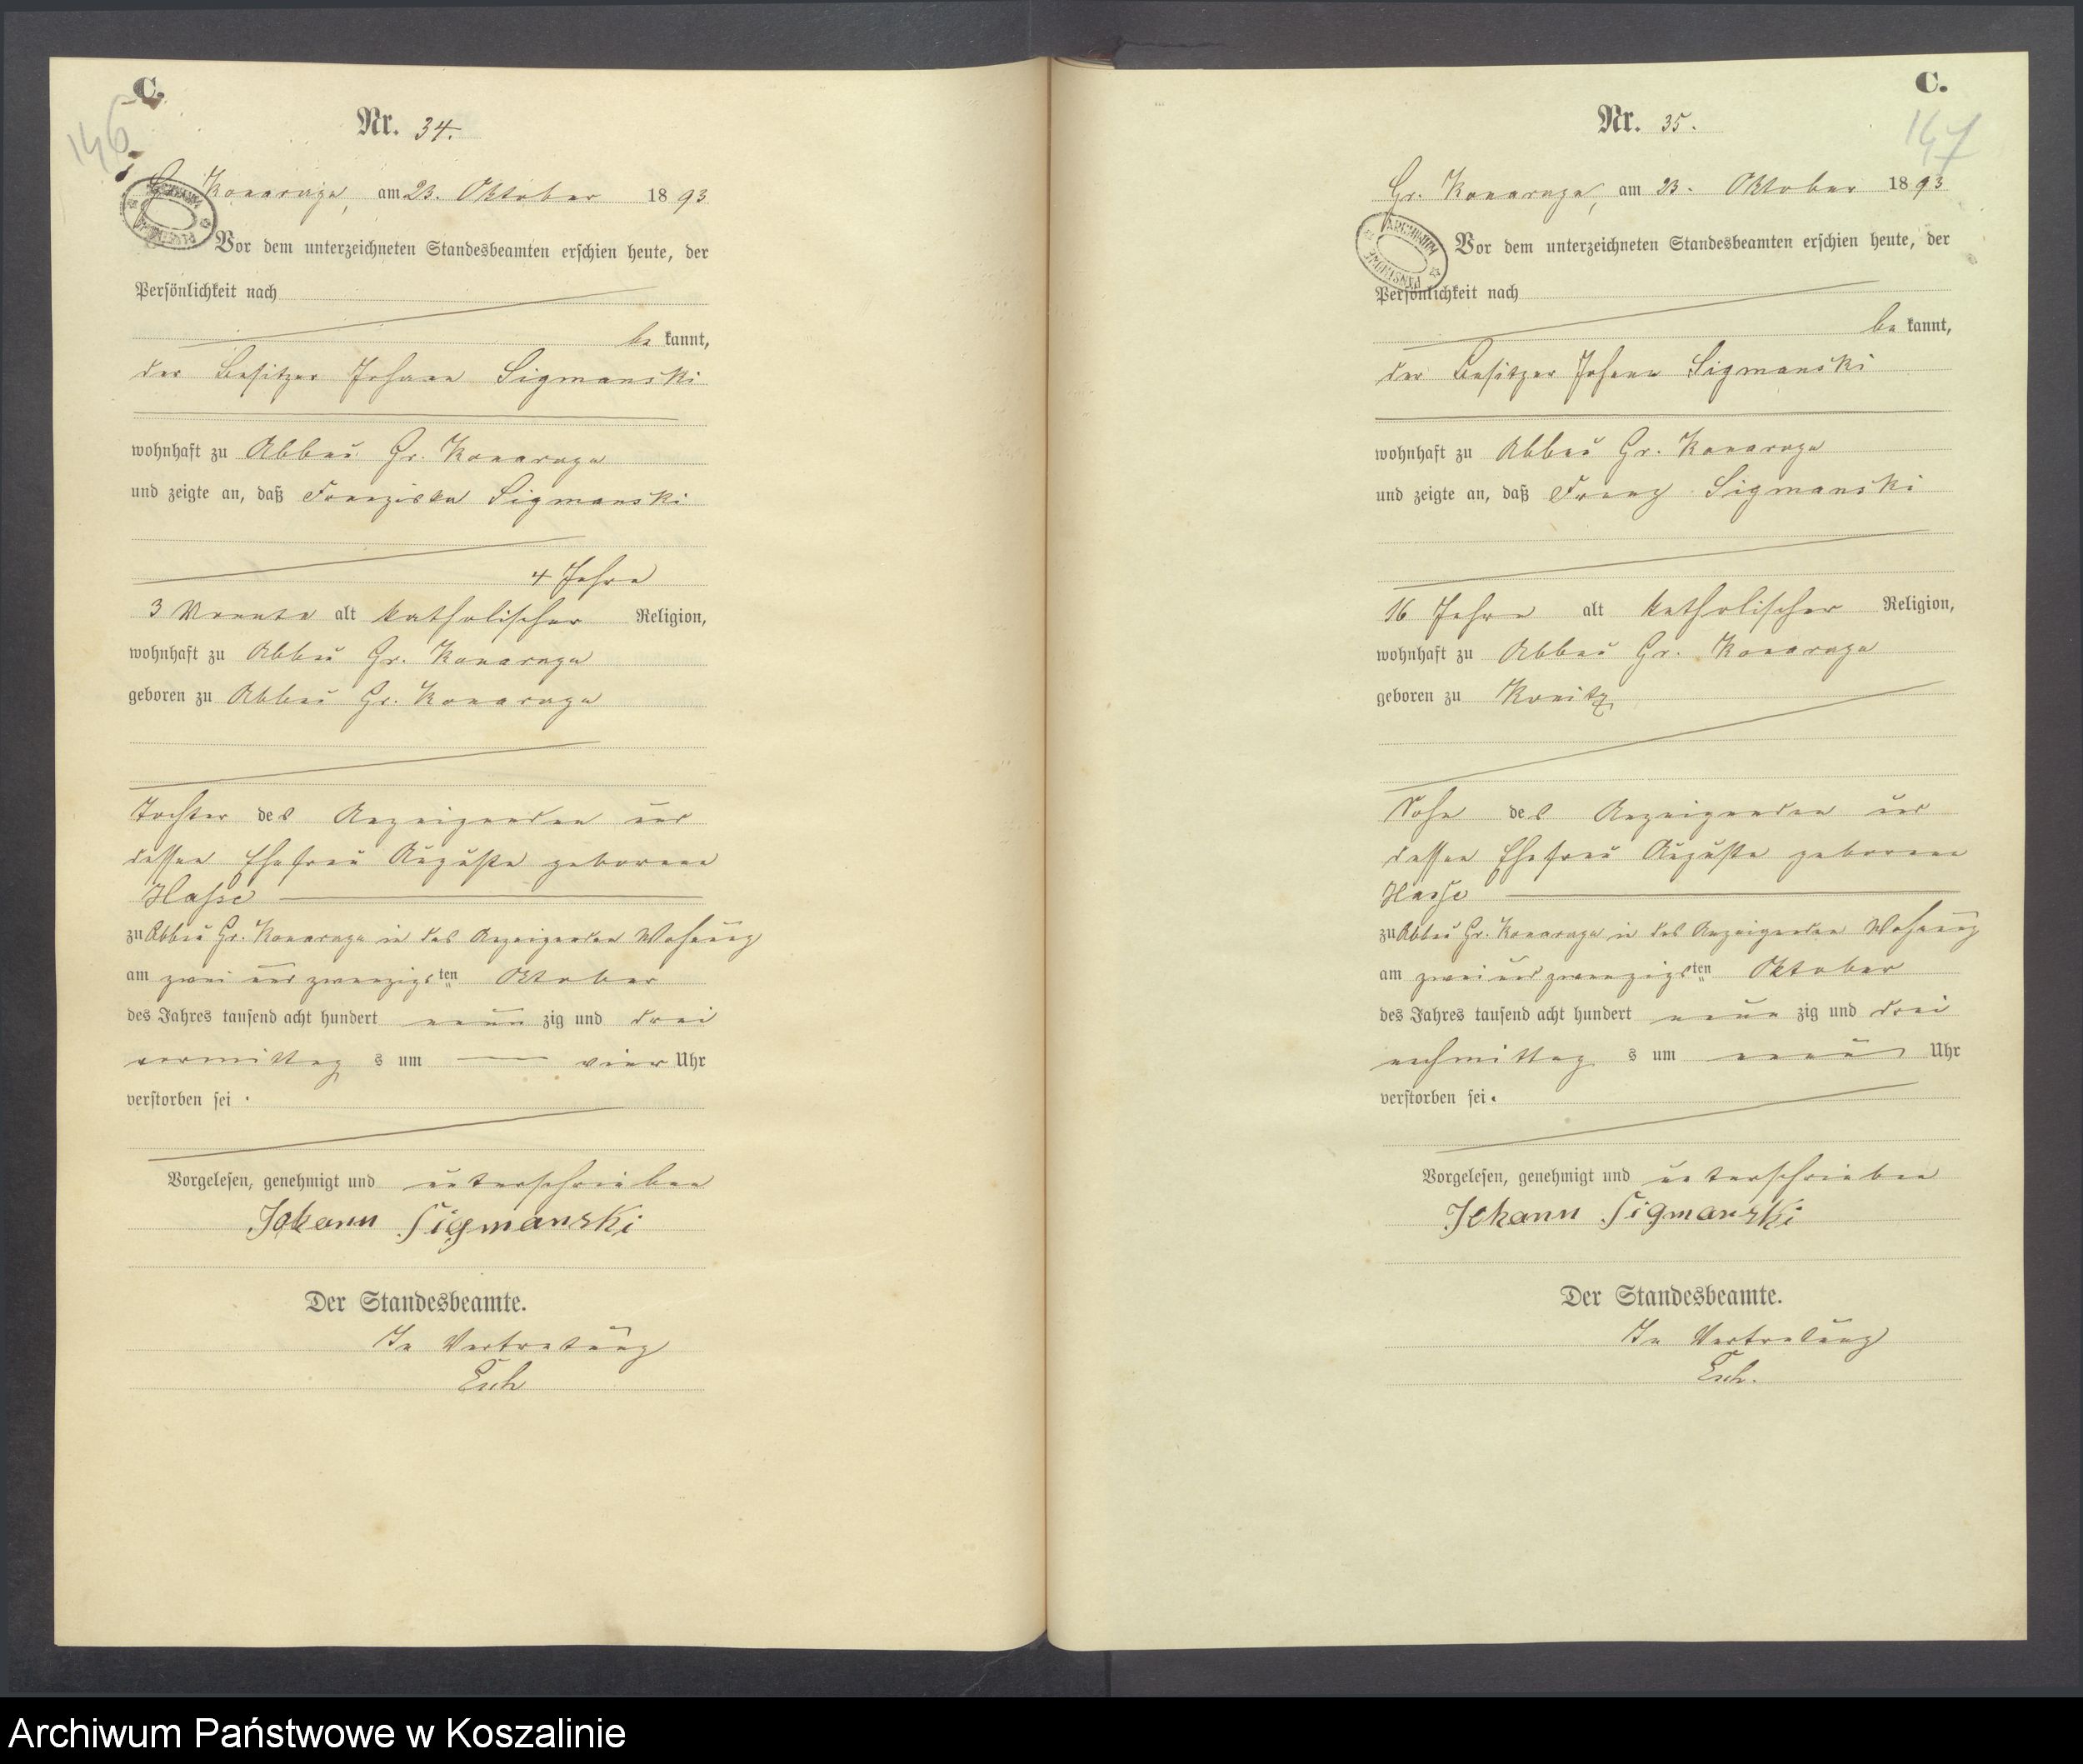 C.
146
Nr. 34.
Gr. Konarczyn, am 23. Oktober 1893
Vor dem unterzeichneten Standesbeamten erschien heute, der
Persönlichkeit nach
be kannt,
der Besitzer Johann Sigmanski
wohnhaft zu Abbau Gr. Konarczyn
und zeigte an, daß Franziska Sigmanski
4 Jahre
3 Monate alt katholischer Religion,
wohnhaft zu Abbau Gr. Konarczyn
geboren zu Abbau Gr. Konarczyn
Tochter des Anzeigenden und
dessen Ehefrau Auguste geborene
Hasse
zu Abbau Gr. Konarczyn in des Anzeigenden Wohnung
am zwei und zwanzigsten Oktober
des Jahres tausend acht hundert neun zig und drei
vormittag s um vier Uhr
verstorben sei.
Vorgelesen, genehmigt und unterschrieben
Johann Sigmanski
Der Standesbeamte.
In Vertretung
C.
147
Nr. 35.
Gr. Konarczyn, am 23. Oktober 1893
ARCHIWUM
Vor dem unterzeichneten Standesbeamten erschien heute, der
Persönlichkeit nach
be kannt,
der Besitzer Johann Sigmanski
wohnhaft zu Abbau Gr. Konarczyn
und zeigte an, daß Franz Sigmanski
16 Jahre alt katholischer Religion,
wohnhaft zu Abbau Gr. Konarczyn
geboren zu Konitz
Sohn des Anzeigenden und
dessen Ehefrau Auguste geborene
Hasse
zu Abbau Gr. Konarczyn in des Anzeigenden Wohnung
am zwei und zwanzigsten Oktober
des Jahres tausend acht hundert neun zig und drei
nachmittag s um neun Uhr
verstorben sei.
Vorgelesen, genehmigt und unterschrieben
Johann Sigmanski
Der Standesbeamte.
In Vertretung
Archiwum Państwowe w Koszalinie